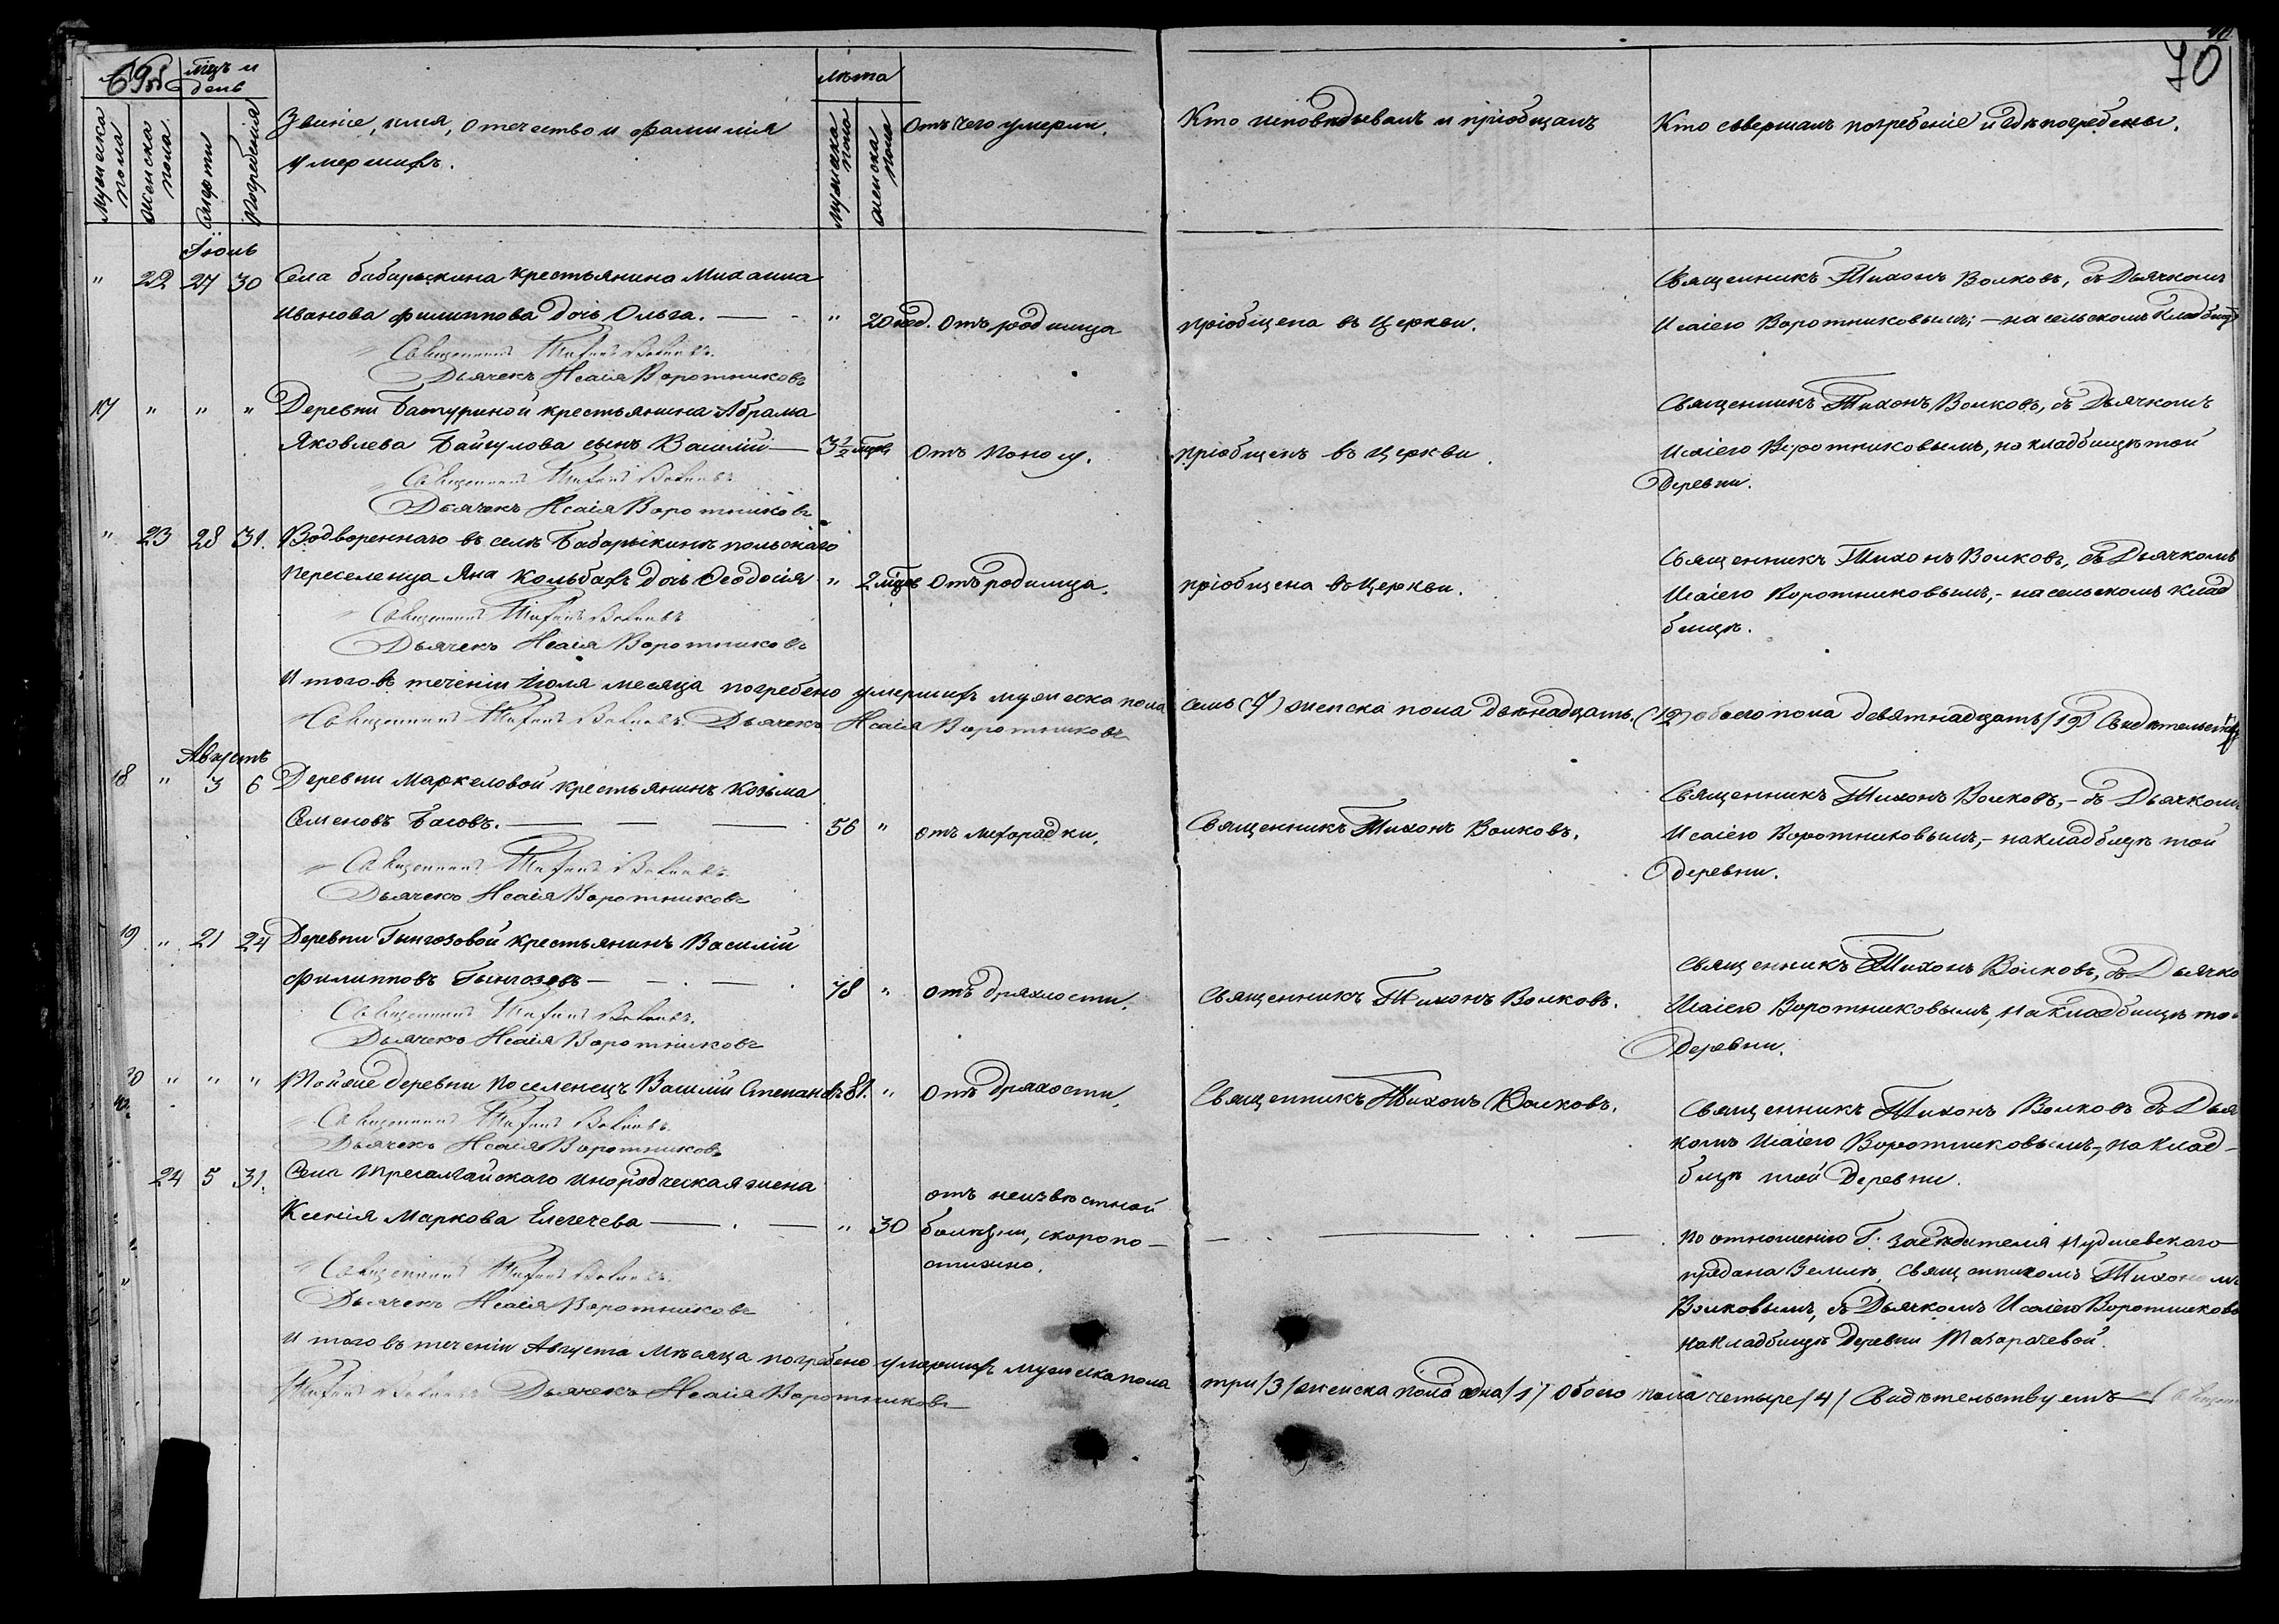 70
мцъ и
день
лѣта
Мужеска пола
женска пола
смерти
Погребенія
Званіе, имя, отечество и фамилія
умершихъ.
мужеска пола
женска пола
Отъ чего умерли.
Кто исповѣдывалъ и пріобщалъ
Кто совершалъ погребеніе и гдѣ погребены.
Іюль
" 22 27 30 Села бабарыкина крестьянина Михаила
Иванова филиппова дочь Ольга. — " 20 нед. Отъ родимца пріобщена въ Церкви.
Священникъ Тихонъ Волковъ, съ Дьячкомъ
Исаіею Воротниковымъ; — на сельскомъ кладбищѣ
Священникъ Тихонъ Волковъ.
Дьячекъ Исаія Воротниковъ
17 " " " Деревни Батуриной крестьянина Абрама
Яковлева Байгулова сынъ Василій — 3½ мцовъ Отъ поносу. пріобщенъ въ Церкви.
Священникъ Тихонъ Волковъ, съ Дьячкомъ
Исаіею Воротниковымъ, на кладбищѣ той
Деревни.
Священникъ Тихонъ Волковъ
Дьячекъ Исаія Воротниковъ
" 23 28 31. Водвореннаго въ селѣ Бабарыкинѣ польскаго
переселенца Яна Кольбахъ дочь Ѳеодосія " 2 мцовъ Отъ родимца. пріобщена въ Церкви.
Священникъ Тихонъ Волковъ, съ Дьячкомъ
Исаіею Воротниковымъ, - на сельскомъ клад
бищѣ.
Священникъ Тихонъ Волковъ
Дьячекъ Исаія Воротниковъ
Итого въ теченіи Іюля месяца погребено умершихъ мужеска пола семь (7) женска пола двѣнадцать (12) обоего пола девятнадцать (19)
Священникъ Тихонъ Волковъ. Дьячекъ Исаія Воротниковъ
Августъ
18 " 3 6 Деревни Маркеловой крестьянинъ Козьма
Семеновъ Басовъ. — — — 56 " отъ лихорадки. Священникъ Тихонъ Волковъ.
Священникъ Тихонъ Волковъ, - съ Дьячкомъ
Исаіею Воротниковымъ, - на кладбищѣ той
деревни.
Священникъ Тихонъ Волковъ.
Дьячекъ Исаія Воротниковъ
19 " 21 24 Деревни Гынгозовой крестьянинъ Василій
Филипповъ Гынгозовъ — — . — 78 " отъ дряхлости. Священникъ Тихонъ Волковъ.
Священникъ Тихонъ Волковъ, съ Дьячко
Исаіею Воротниковымъ, на кладбищѣ то
Деревни.
Священникъ Тихонъ Волковъ.
Дьячекъ Исаія Воротниковъ
20 " " " Той же деревни поселенецъ Василій Степановъ 81. " Отъ дряхлости. Священникъ Тихонъ Волковъ.
Священникъ Тихонъ Волковъ съ Дья
комъ Исаіею Воротниковымъ, на клад-
бищѣ той Деревни.
Священникъ Тихонъ Волковъ.
Дьячекъ Исаія Воротниковъ
24 5 31. инородческая жена
Ксенія Маркова Елегечева — . — " 30 отъ неизвѣстной
болѣзни, скоропо-
стижно.
По отношенію Г. Засѣдателя
предана Землѣ, Священникомъ Тихономъ
Волковымъ, съ Дьячкомъ Исаіею Воротниково
на кладбищѣ Деревни
Священникъ Тихонъ Волковъ.
Дьячекъ Исаія Воротниковъ
Итого въ теченіи Августа мѣсяца погребено умершихъ мужеска пола три /3/ женска пола одна /1/ Обоего пола четыре /4/ Свидѣтельствуемъ — Священ
Тихонъ Волковъ Дьячекъ Исаія Воротниковъ